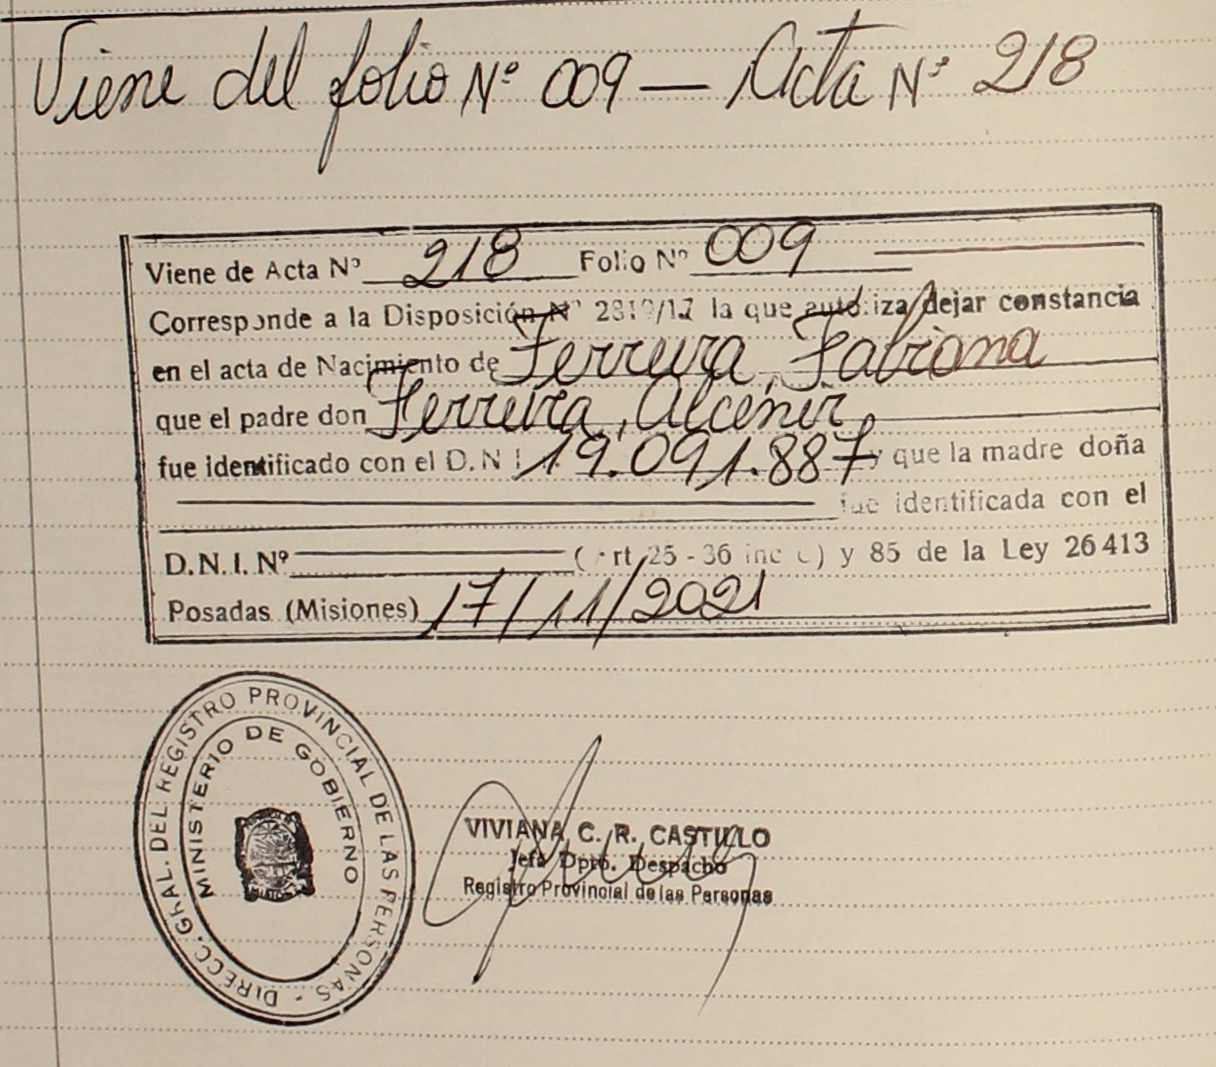 Viene del folio Nº 009 — Acta Nº 218
Viene de Acta Nº 218 Folio Nº 009
Corresponde a la Disposición Nº 2819/17 la que autoriza dejar constancia
en el acta de Nacimiento de Ferreira, Fabiana
que el padre don Ferreira, Alcenir
fue identificado con el D.N.I. 19.091.887 y que la madre doña
fue identificada con el
D.N.I. Nº (Art 25 - 36 inc c) y 85 de la Ley 26413
Posadas (Misiones) 17/11/2021
DIRECC. GRAL. DEL REGISTRO PROVINCIAL DE LAS PERSONAS -
MINISTERIO DE GOBIERNO
VIVIANA C. R. CASTILLO
Jefa Dpto. Despacho
Registro Provincial de las Personas